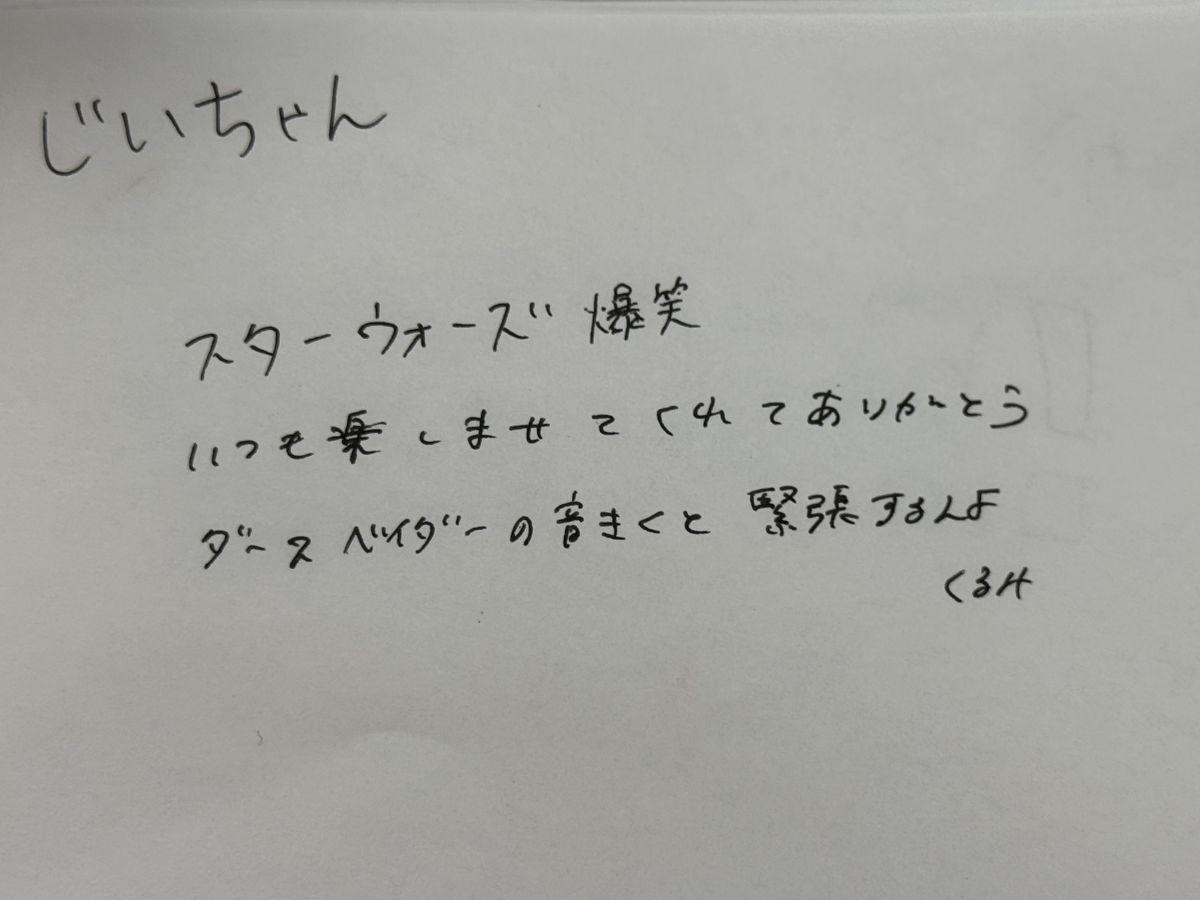 じいちゃん
スターウォーズ 爆笑
いつも楽しませてくれてありがとう
ダースベイダーの音きくと緊張するんよ
くるみ